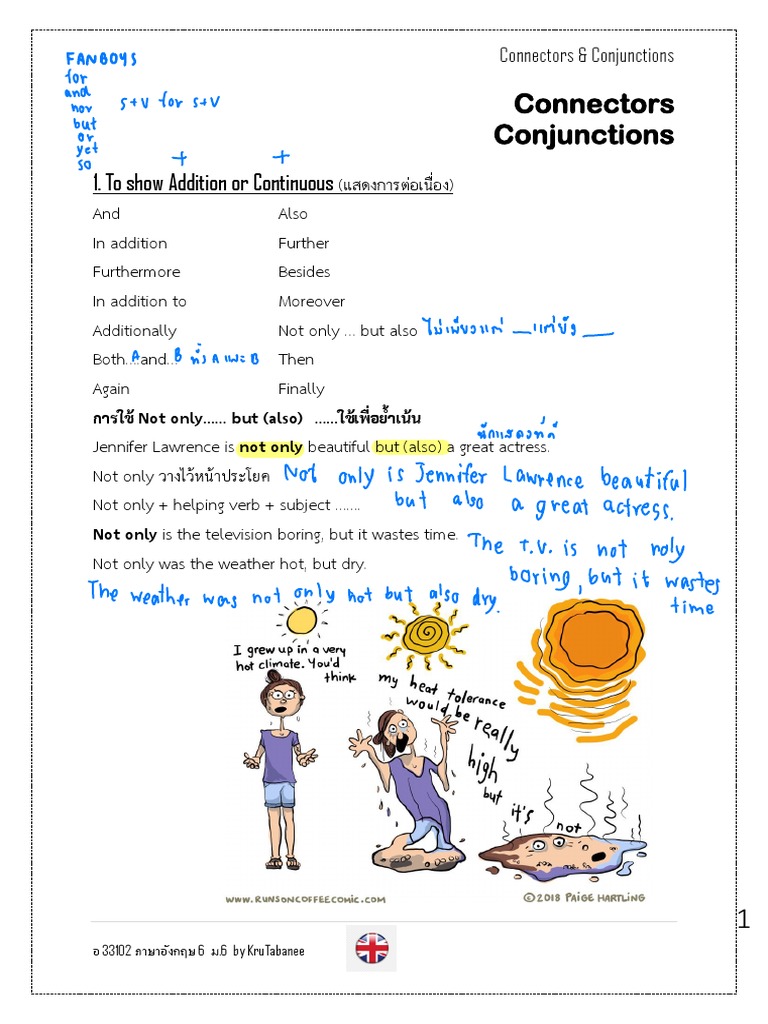 Connectors & Conjunctions
FANBOYS
for
and
nor
but
or
yet
so
S+V for S+V
Connectors
Conjunctions
+ +
1. To show Addition or Continuous (แสดงการต่อเนื่อง)
And Also
In addition Further
Furthermore Besides
In addition to Moreover
Additionally Not only ... but also ไม่เพียงแต่ __แต่ยัง __
Both....and... A B ทั้ง A และ B Then
Again Finally
การใช้ Not only...... but (also) ......ใช้เพื่อย้ำเน้น
นักแสดงที่ดี
Jennifer Lawrence is not only beautiful but (also) a great actress.
Not only วางไว้หน้าประโยค Not only is Jennifer Lawrence beautiful
Not only + helping verb + subject ....... but also a great actress.
Not only is the television boring, but it wastes time. The T.V. is not noly
Not only was the weather hot, but dry. boring, but it wastes
time
The weather was not only hot but also dry.
I grew up in a very
hot climate. You'd
think
my heat tolerance
would be really
high
but it's
not
www.runsoncoffeecomic.com ©2018 Paige Hartling
1
อ 33102 ภาษาอังกฤษ 6 ม.6 by KruTabanee